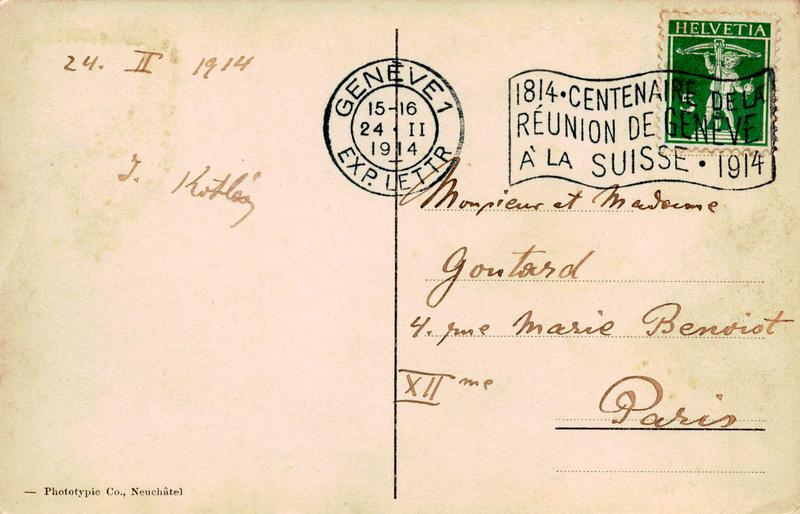 24. II 1914
GENÈVE 1
15-16
24·II
1914
EXP. LETTR
HELVETIA
5
1814·CENTENAIRE DE LA
RÉUNION DE GENÈVE
À LA SUISSE·1914
J.
Monsieur et Madame
Goutard
4. rue Marie Benoist
XII me
Paris
— Phototypie Co., Neuchâtel